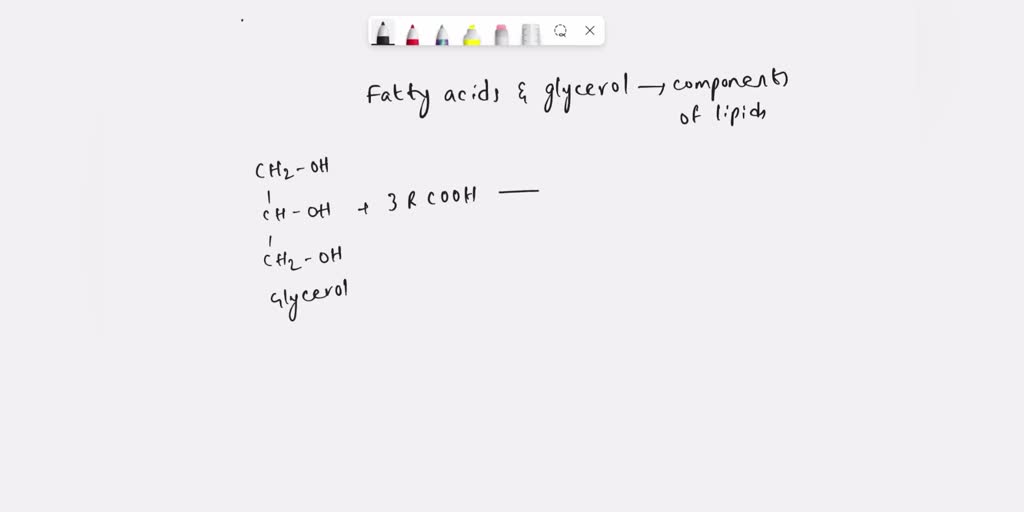 Fatty acids & glycerol → components
of lipids
CH2-OH
CH-OH + 3 R COOH —
CH2-OH
Glycerol